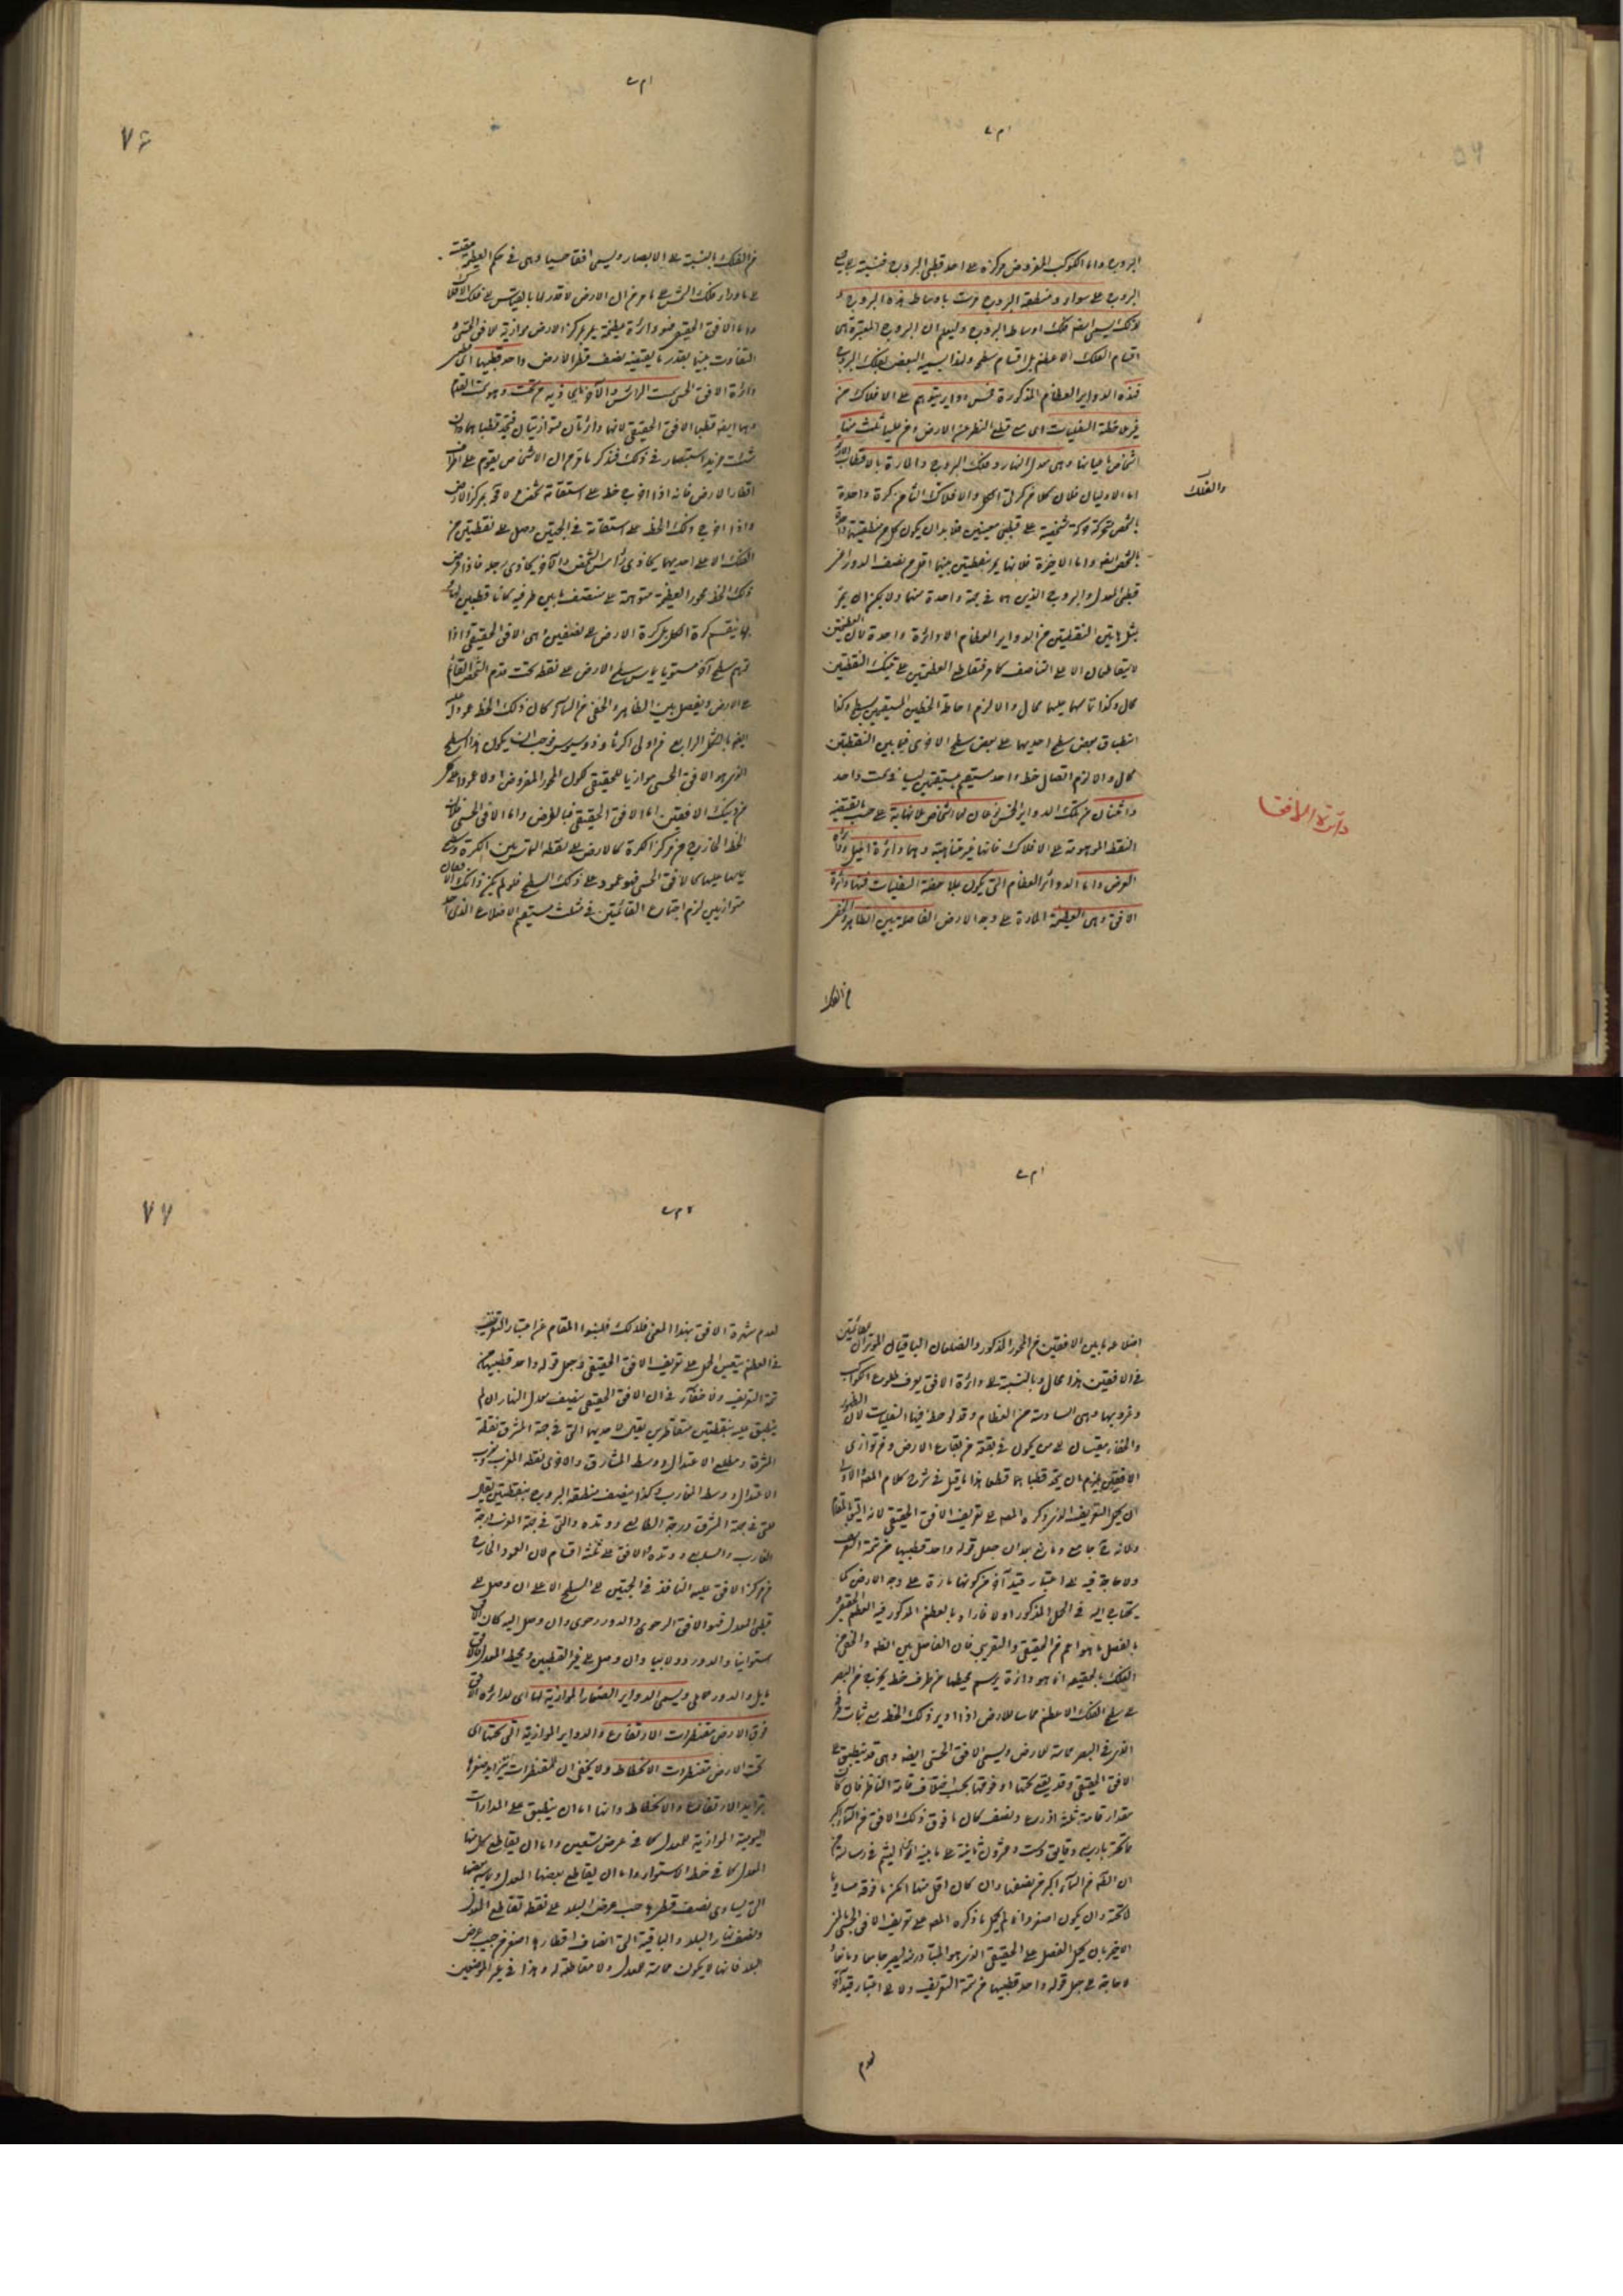 البروج واما الكوكب المفروض مركزه على احد قطبى البروج فنسبته الى جميع
البروج على سواء ومنطقة البروج مرت باوساط هذه البروج و
لذلك يسمى ايضا فلك اوساط البروج وليعلم ان البروج المعتبرة هى
اقسام الفلك الاعظم بل اقسام سطحه ولذا يسميه البعض بفلك البروج
فهذه الدواير العظام المذكورة خمس دواير يتوهم على الافلاك من
غير ملاحظة السفليات اى مع قطع النظر عن الارض و من عليها ثلث منها
اشخاص باعيانها وهى معدل النهار وفلك البروج والمارة بالاقطاب الاربعة
اما الاوليان فلان كلا من كرتى الكل والافلاك الثامن كرة واحدة
بالشخص متحركة حركة شخصية على قطبين معينين فلا بد ان يكون كل من منطقتيهما واحدة
بالشخص ايضا واما الاخيرة فلانها يمر بنقطتين بينهما اقل من نصف الدور اعنى
قطبى المعدل والبروج الذين هما فى جهة واحدة منهما ولا يمكن ان يمر
بمثل هاتين النقطتين من الدواير العظام الا دائرة واحدة لان العظيمتين
لا يتقاطعان الا على التناصف كما مر فتقاطع العظيمتين على تينك النقطتين
محال وكذا تماسهما عليهما محال والا لزم احاطة الخطين المستقيمين بسطح وكذا
انطباق بعض سطح احديهما على بعض سطح الاخرى فيما بين النقطتين
محال والا لزم اتصال خط واحد مستقيم بمستقيمين ليسا فى سمت واحد
واثنتان من تلك الدواير الخمس نوعان لهما اشخاص بلا نهاية على حسب ما يقتضيه
النقط الموهومة على الافلاك فانها غير متناهية وهما دائرة الميل ودائرة
العرض واما الدوائر العظام التى يكون بملاحظة السفليات فمنها دائرة
الافق وهى العظيمة المارة على وجه الارض الفاصلة بين الظاهر والخفى
من الفلك
والفلك
دائرة الافق
٧٦
من الفلك بالنسبة الى الابصار ويسمى افقا حسيا وهى فى حكم العظيمة حقيقة
على ما وراء فلك الشمس على ما مر من ان الارض لا قدر لها بالقياس على فلك الافلاك
واما الافق الحقيقى فهو دائرة عظيمة يمر بمركز الارض موازية للافق الحسى و
التفاوت بينهما بقدر ما يقتضيه نصف قطر الارض واحد قطبيها اى قطبى
دائرة الافق الحسى سمت الرأس والآخر ما يحاذيه من تحت وهو سمت القدم
وهما ايضا قطبا الافق الحقيقى لانهما دائرتان متوازيتان فيتحد قطباهما وان
شئت مزيد استبصار فى ذلك فتذكر ما مر من ان الاشخاص يقوم على اطراف
اقطار الارض فانه اذا اخرج خط على استقامة شخص لا محة بمركز الارض
واذا اخرج ذلك الخط على استقامة فى الجهتين وصل الى نقطتين من
الفلك الاعلى احديهما يحاذى رأس الشخص والآخر يحاذى رجله فاذا فرض
ذلك الخط محور العظيمة متوهمة على منتصف ما بين طرفيه كانتا قطبين لها
بها ينقسم كرة الكل بل كرة الارض على نصفين وهى الافق الحقيقى واذا
توهم سطح آخر مستويا يماس سطح الارض على نقطة تحت قدم الشخص القائم
على الارض ويفصل بين الظاهر والخفى من السماء كان ذلك الخط عمودا عليه
ايضا بالشكل الرابع من اولى اكر ثاوذوسيوس فوجب ان يكون هذا السطح
الذى هو الافق الحسى موازيا للحقيقى لكون المحور المفروض اولا عمودا على كل
من ذينك الافقين اما الافق الحقيقى فبالفرض واما الافق الحسى فلان
الخط الخارج من مركز الكرة كالارض على نقطة التماس بين الكرة وسطح
يماسها عليها كالافق الحسى فهو عمود على ذلك السطح فلو لم يكن ذانك الافقان
متوازيين لزم اجتماع القائمتين فى مثلث مستقيم الاضلاع الذى احد
اضلاعه ما بين الافقين من المحور المذكور والضلعان الباقيان الموتران لقائمتين
فى الافقين هذا محال وبالنسبة على دائرة الافق يعرف طلوع الكواكب
وغروبها وهى السادسة من العظام وقد لوحظ فيها السفليات لان الظهور
والخفاء يعتبران على من يكون فى بقعة من بقاع الارض و من توازى
الافقين يلزم ان يتحد قطباهما قطعا هذا ما قيل فى شرح كلام المصنف والاولى
ان يحمل التعريف الذى ذكره المصنف على تعريف الافق الحقيقى لانه اليق بالمقام
ولانه ح جامع ومانع بدون جعل قوله واحد قطبيها من تتمة التعريف
ولا حاجة فيه على اعتبار قيد آخر من كونها مارة على وجه الارض كما
يحتاج اليه فى الحمل المذكور اولا فاراد بالعظيم المذكور فيه العظيم الحقيقى و
بالفصل ما هو اعم من الحقيقى والتقريبى فان الفاصل بين الظاهر والخفى من
الفلك بالحقيقة انما هو دائرة يرسم محيطها من طرف خط يخرج من البصر
على سطح الفلك الاعظم مماسا للارض اذا ادير ذلك الخط مع ثبات طرفه
الذى فى البصر مماسة للارض ويسمى الافق الحسى ايضا وهى قد ينطبق على
الافق الحقيقى وقد يقع تحتها او فوقها بحسب اختلاف قامة الناظر فان كان
مقدار قامته ثلثة اذرع ونصف كان ما فوق ذلك الافق من السماء اكثر
مما تحته باربع دقايق وست وعشرون ثانية على ما بينه ابن الهيثم فى رسالة من
ان الظاهر من السماء اكبر من نصفها وان كان اقل منها امكن ما فوقه مساويا
لما تحته وان يكون اصغر وانما لم يحمل ما ذكره المصنف على تعريف الافق الحسى بالمعنى
الاخير بان يحمل الفصل على الحقيقى الذى هو المتبادر منه ليصير جامعا ومانعا
لا حاجة على جعل قوله واحد قطبيها من تتمة التعريف ولا على اعتبار قيد آخر
لعدم
٧٧
لعدم شهرة الافق بهذا المعنى فلذلك
فى العظم يتعين الحمل على تعريف الافق الحقيقى وجعل قوله واحد قطبيها من
تتمة التعريف ولا خفاء فى ان الافق الحقيقى ينصف معدل النهار ان لم
ينطبق عليه بنقطتين متقاطرتين يقال لاحديهما التى فى جهة المشرق نقطة
المشرق ومطلع الاعتدال ووسط المشارق والاخرى نقطة المغرب ومغرب
الاعتدال ووسط المغارب وكذا ينصف منطقة البروج بنقطتين يقال
للتى فى جهة المشرق درجة الطالع ووتده والتى فى جهة المغرب درجة
الغارب والسابع ووتده والافق على ثلثة اقسام لان العمود الخارج
من مركز الافق عليه النافذ فى الجهتين على السطح الاعلى ان وصل على
قطبى المعدل فهو الافق الرحوى والدور رحوى وان وصل اليه كان الافق
استوائيا والدور دولابيا وان وصل على غير القطبين ومحيط المعدل فالافق
مايل والدور حمايلى ويسمى الدواير الصغار الموازية لها اى لدائرة الافق
فوق الارض مقنطرات الارتفاع والدواير الموازية التى تحتها اى
تحت الارض مقنطرات الانحطاط ولا يخفى ان المقنطرات يتزايد صغرها
بتزايد الارتفاع والانحطاط وانها اما ان ينطبق على المدارات
اليومية الموازية للمعدل كما فى عرض تسعين واما ان يقاطع كل منها
المعدل كما فى خط الاستواء واما ان يقاطع بعضها المعدل ويماسه بعضها
التى يساوى نصف قطرها جيب عرض البلد على نقطة تقاطع المعدل
ونصف نهار البلد والباقية التى انصاف اقطارها اصغر من جيب عرض
البلد فانها لا يكون مماسة للمعدل ولا مقاطعة له وهذا فى غير الموضعين